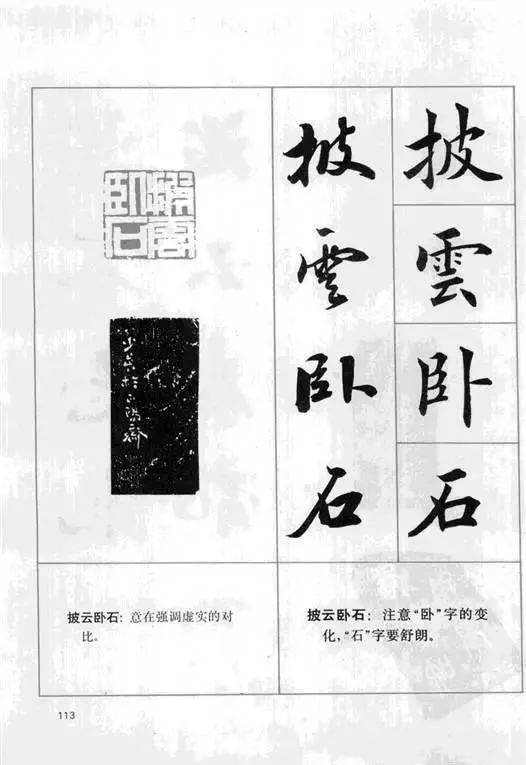 披雲卧石
披雲卧石
披云卧石：意在强调虚实的对
比。
披云卧石：注意“卧”字的变
化，“石”字要舒朗。
113